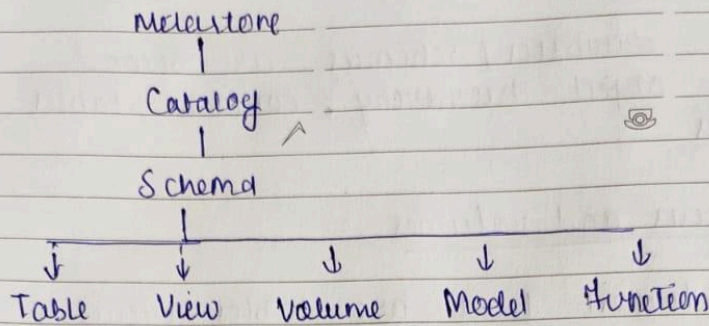 Metastore
Catalog
Schema
Table View Volume Model Function